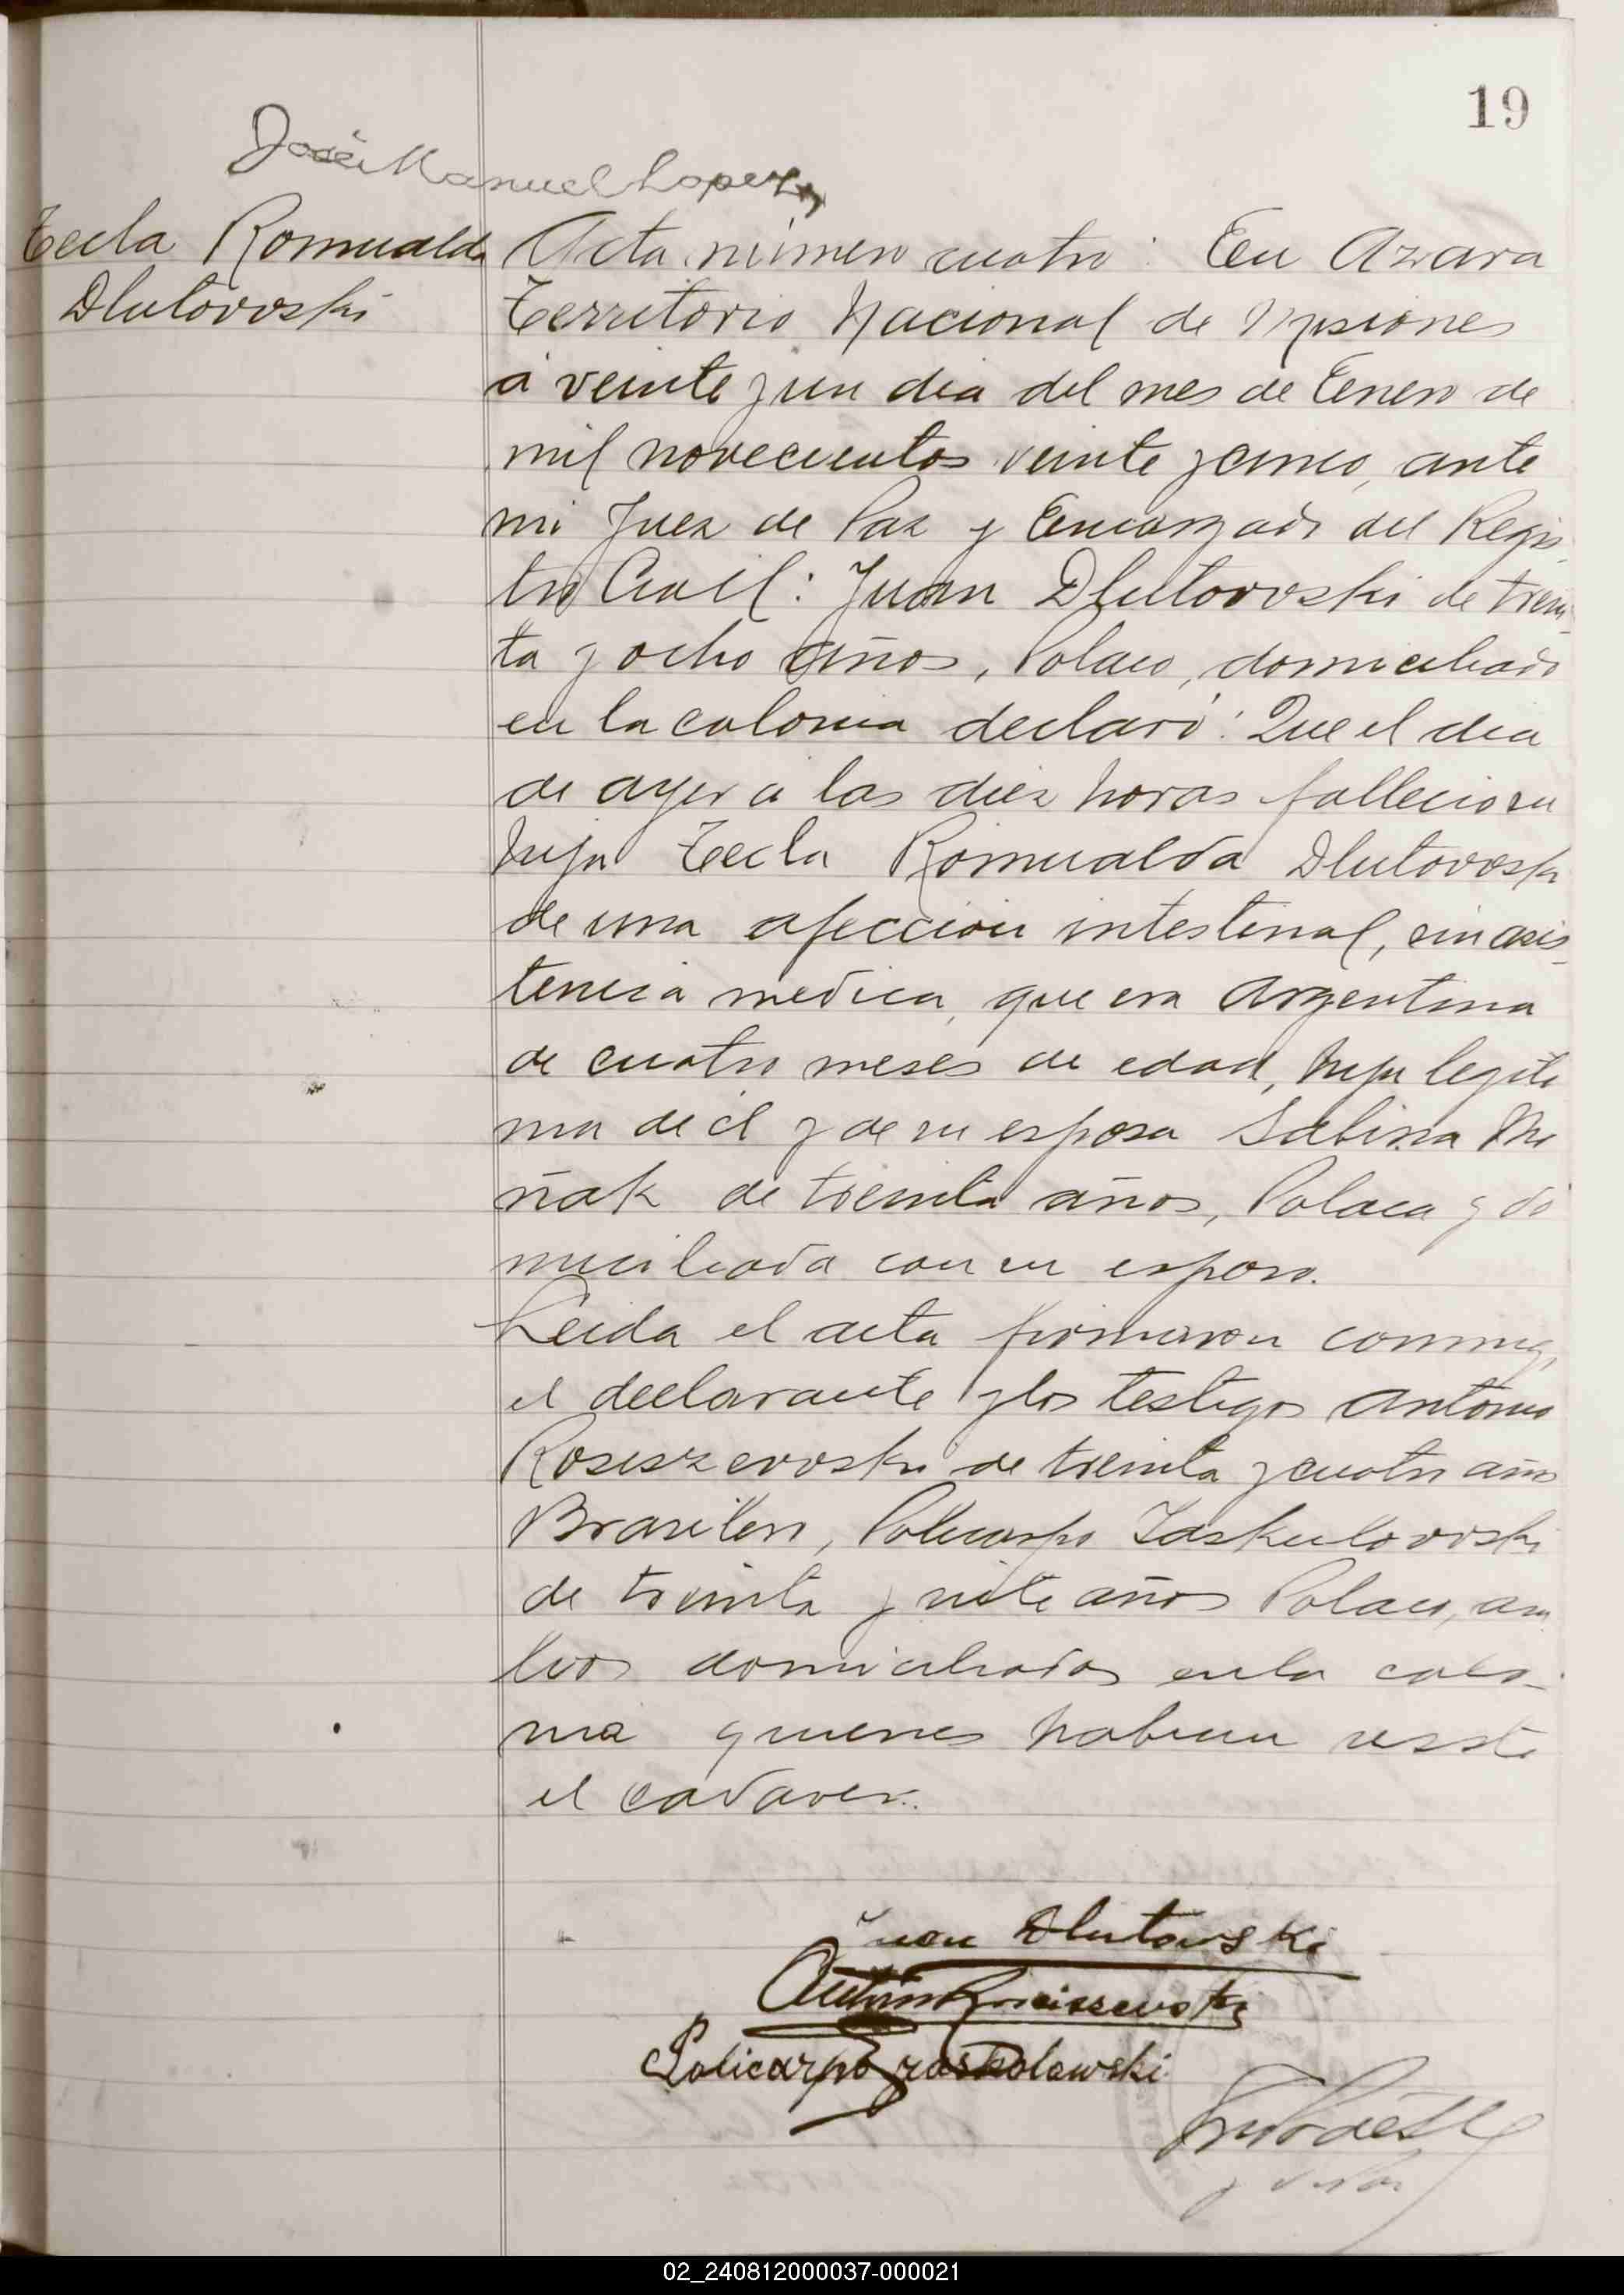 19
José Manuel Lopez
Tecla Romualda
Dlutowski
Acta número cuatro: En Azara
Territorio Nacional de Misiones
á veinte y un dia del mes de Enero de
mil novecientos veinte y cinco, ante
mi Juez de Paz y Encargado del Regis-
tro Civil: Juan Dlutowski de trein-
ta y ocho años, Polaco, domiciliado
en la colonia declaró: Que el dia
de ayer a las diez horas fallecio su
hija Tecla Romualda Dlutowski
de una afeccion intestinal, sin asis-
tencia medica, que era Argentina
de cuatro meses de edad, hija legiti
ma de el y de su esposa Sabina
ñak de treinta años, Polaca y do
miciliada con su esposo.
Leida el acta firmaron conmigo
el declarante y los testigos Antonio
Rosiszewski de treinta y cuatro años
Brasilero, Policarpo Zaskulowski
de treinta y siete años Polaco, am
bos domiciliados en la colo-
nia quienes habian visto
el cadaver.
Juan Dlutowski
Policarpo